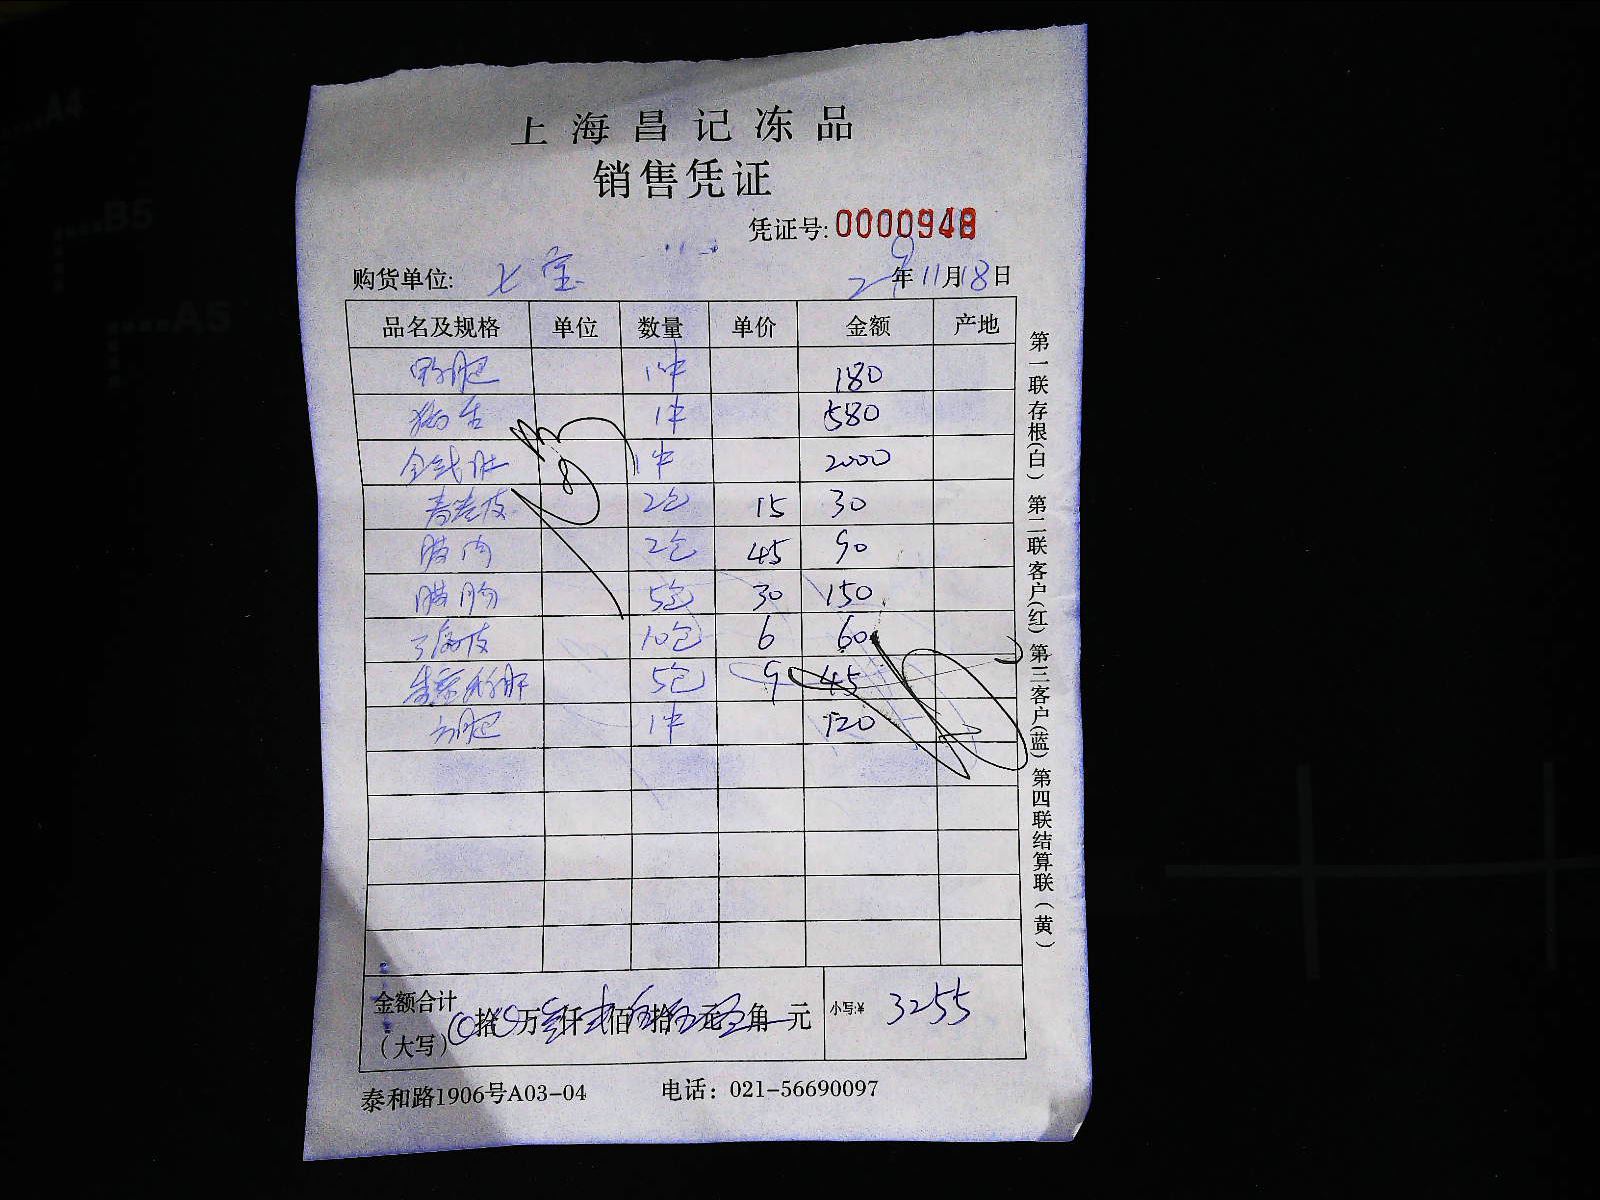 上海昌记冻品
销售凭证
凭证号:0000948
购货单位: 七宝 29年11月18日
品名及规格 单位 数量 单价 金额 产地
1件 180
1件 580
金钱肚 1件 2000
春卷皮 2包 15 30
腊肉 2包 45 90
腊肠 5包 30 150
10包 6 60
5包 9 45
1件 120
金额合计(大写) 0拾0万叁仟贰佰伍拾伍元 角 元 小写:¥ 3255
泰和路1906号A03-04 电话：021-56690097
第一联存根(白) 第二联客户(红) 第三客户(蓝) 第四联结算联(黄)
A4
B5
A5